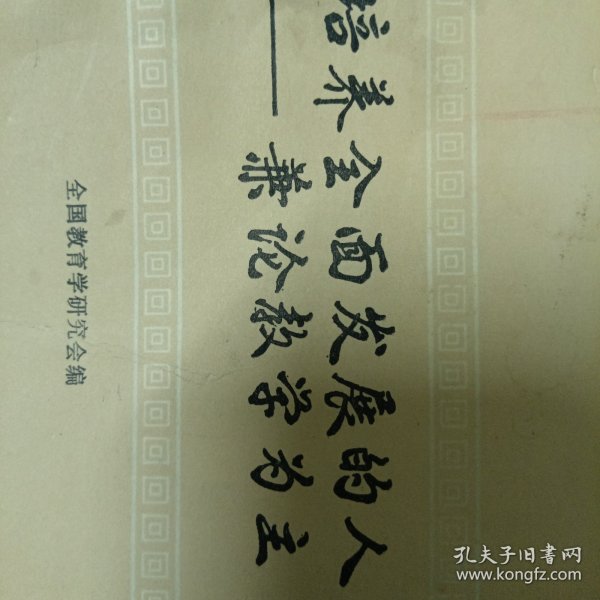 培养全面发展的人
——兼论教学为主
全国教育学研究会编
孔夫子旧书网
www.kongfz.com